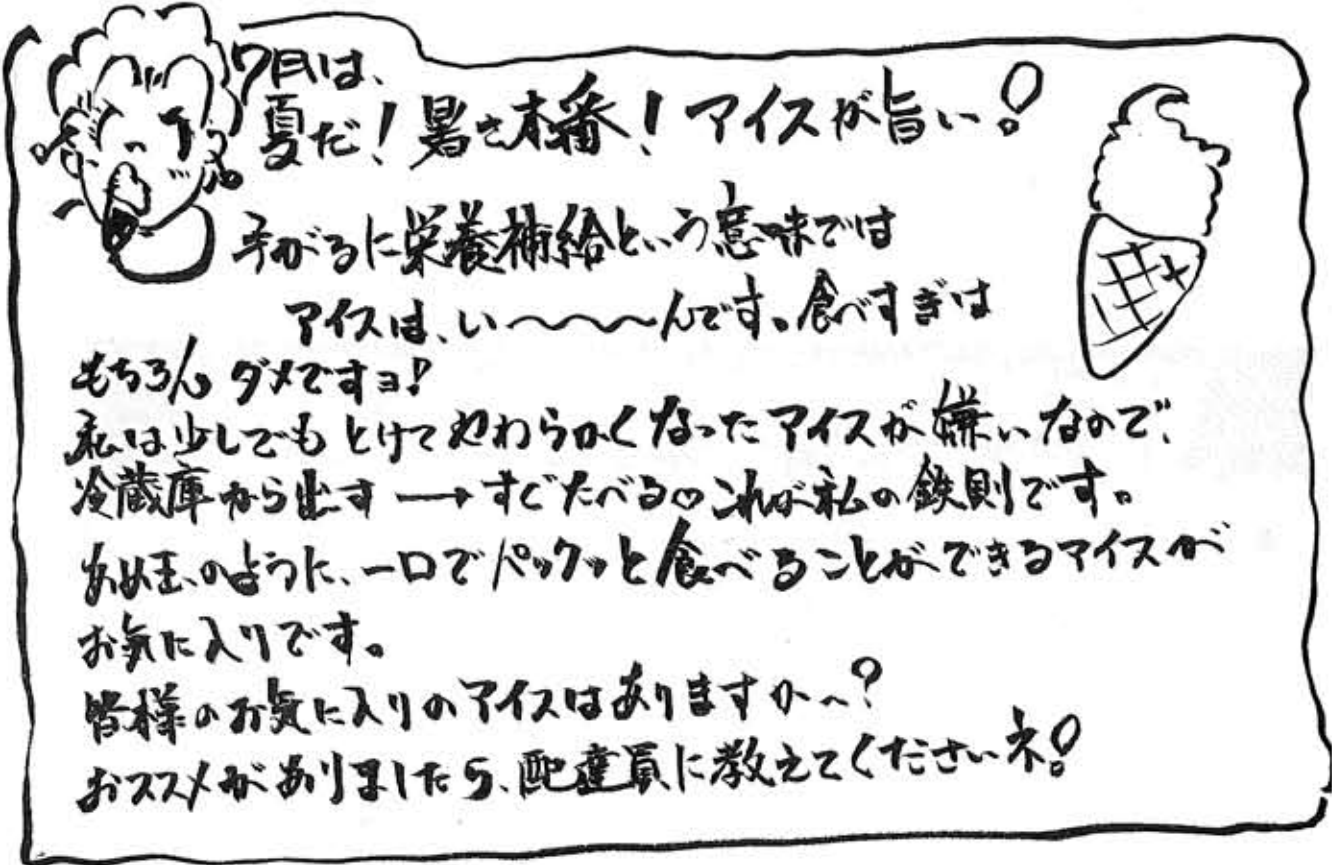 7月は、
夏だ!暑さ本番!アイスが旨い!
手がるに栄養補給という意味では
アイスは、い〜〜〜んです。食べすぎは
もちろんダメですョ!
私は少しでもとけてやわらかくなったアイスが嫌いなので、
冷蔵庫から出す→すぐたべる♡これが私の鉄則です。
あめ玉のように、一口でパックッと食べることができるアイスが
お気に入りです。
皆様のお気に入りのアイスはありますか〜?
おススメがありましたら、配達員に教えてくださいネ!